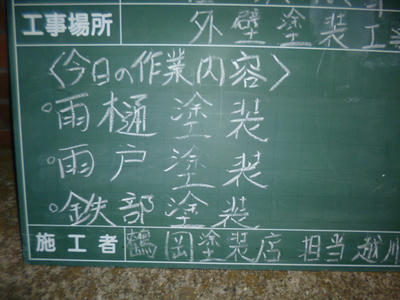 工事場所 外壁塗装工
〈今日の作業内容〉
○雨樋塗装
○雨戸塗装
○鉄部塗装
施工者 鶴岡塗装店 担当 越川